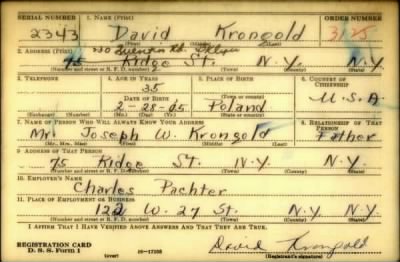 SERIAL NUMBER 1. NAME (Print) ORDER NUMBER
2343 David Krongold 3175
(First) (Middle) (Last)
2. ADDRESS (Print) 730 Quentin Rd. Bklyn
75 Ridge St. N.Y. N.Y.
(Number and street or R. F. D. number) (Town) (County) (State)
3. TELEPHONE 4. AGE IN YEARS 5. PLACE OF BIRTH 6. COUNTRY OF CITIZENSHIP
35
DATE OF BIRTH (Town or county)
2-28-05 Poland U.S.A
(Exchange) (Number) (Mo.) (Day) (Yr.) (State or country)
7. NAME OF PERSON WHO WILL ALWAYS KNOW YOUR ADDRESS 8. RELATIONSHIP OF THAT PERSON
Mr. Joseph W. Krongold Father
(Mr., Mrs., Miss) (First) (Middle) (Last)
9. ADDRESS OF THAT PERSON
75 Ridge St. N.Y. N.Y.
(Number and street or R. F. D. number) (Town) (County) (State)
10. EMPLOYER'S NAME
Charles Pachter
11. PLACE OF EMPLOYMENT OR BUSINESS
122 W. 27 St. N.Y. N.Y.
(Number and street or R. F. D. number) (Town) (County) (State)
I AFFIRM THAT I HAVE VERIFIED ABOVE ANSWERS AND THAT THEY ARE TRUE.
REGISTRATION CARD
D. S. S. Form 1 (over) 16-17105 David Krongold
(Registrant's signature)